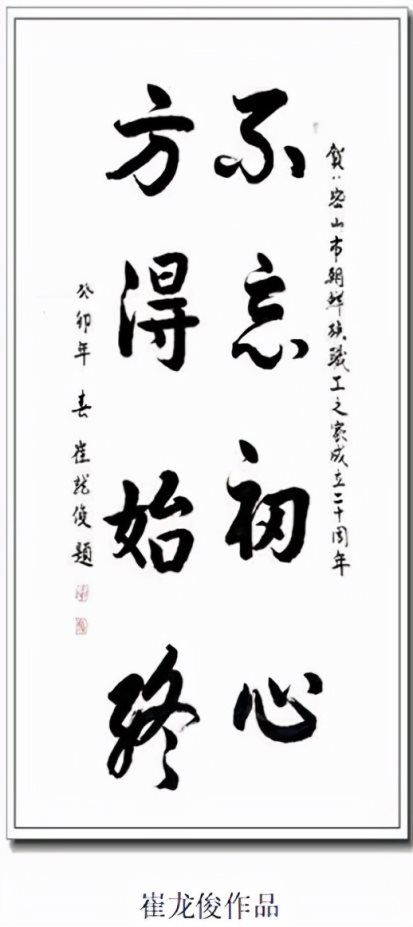 賀密山市朝鮮族職工之家成立二十周年
不忘初心
方得始終
癸卯年 春 崔龍俊題
崔龙俊作品